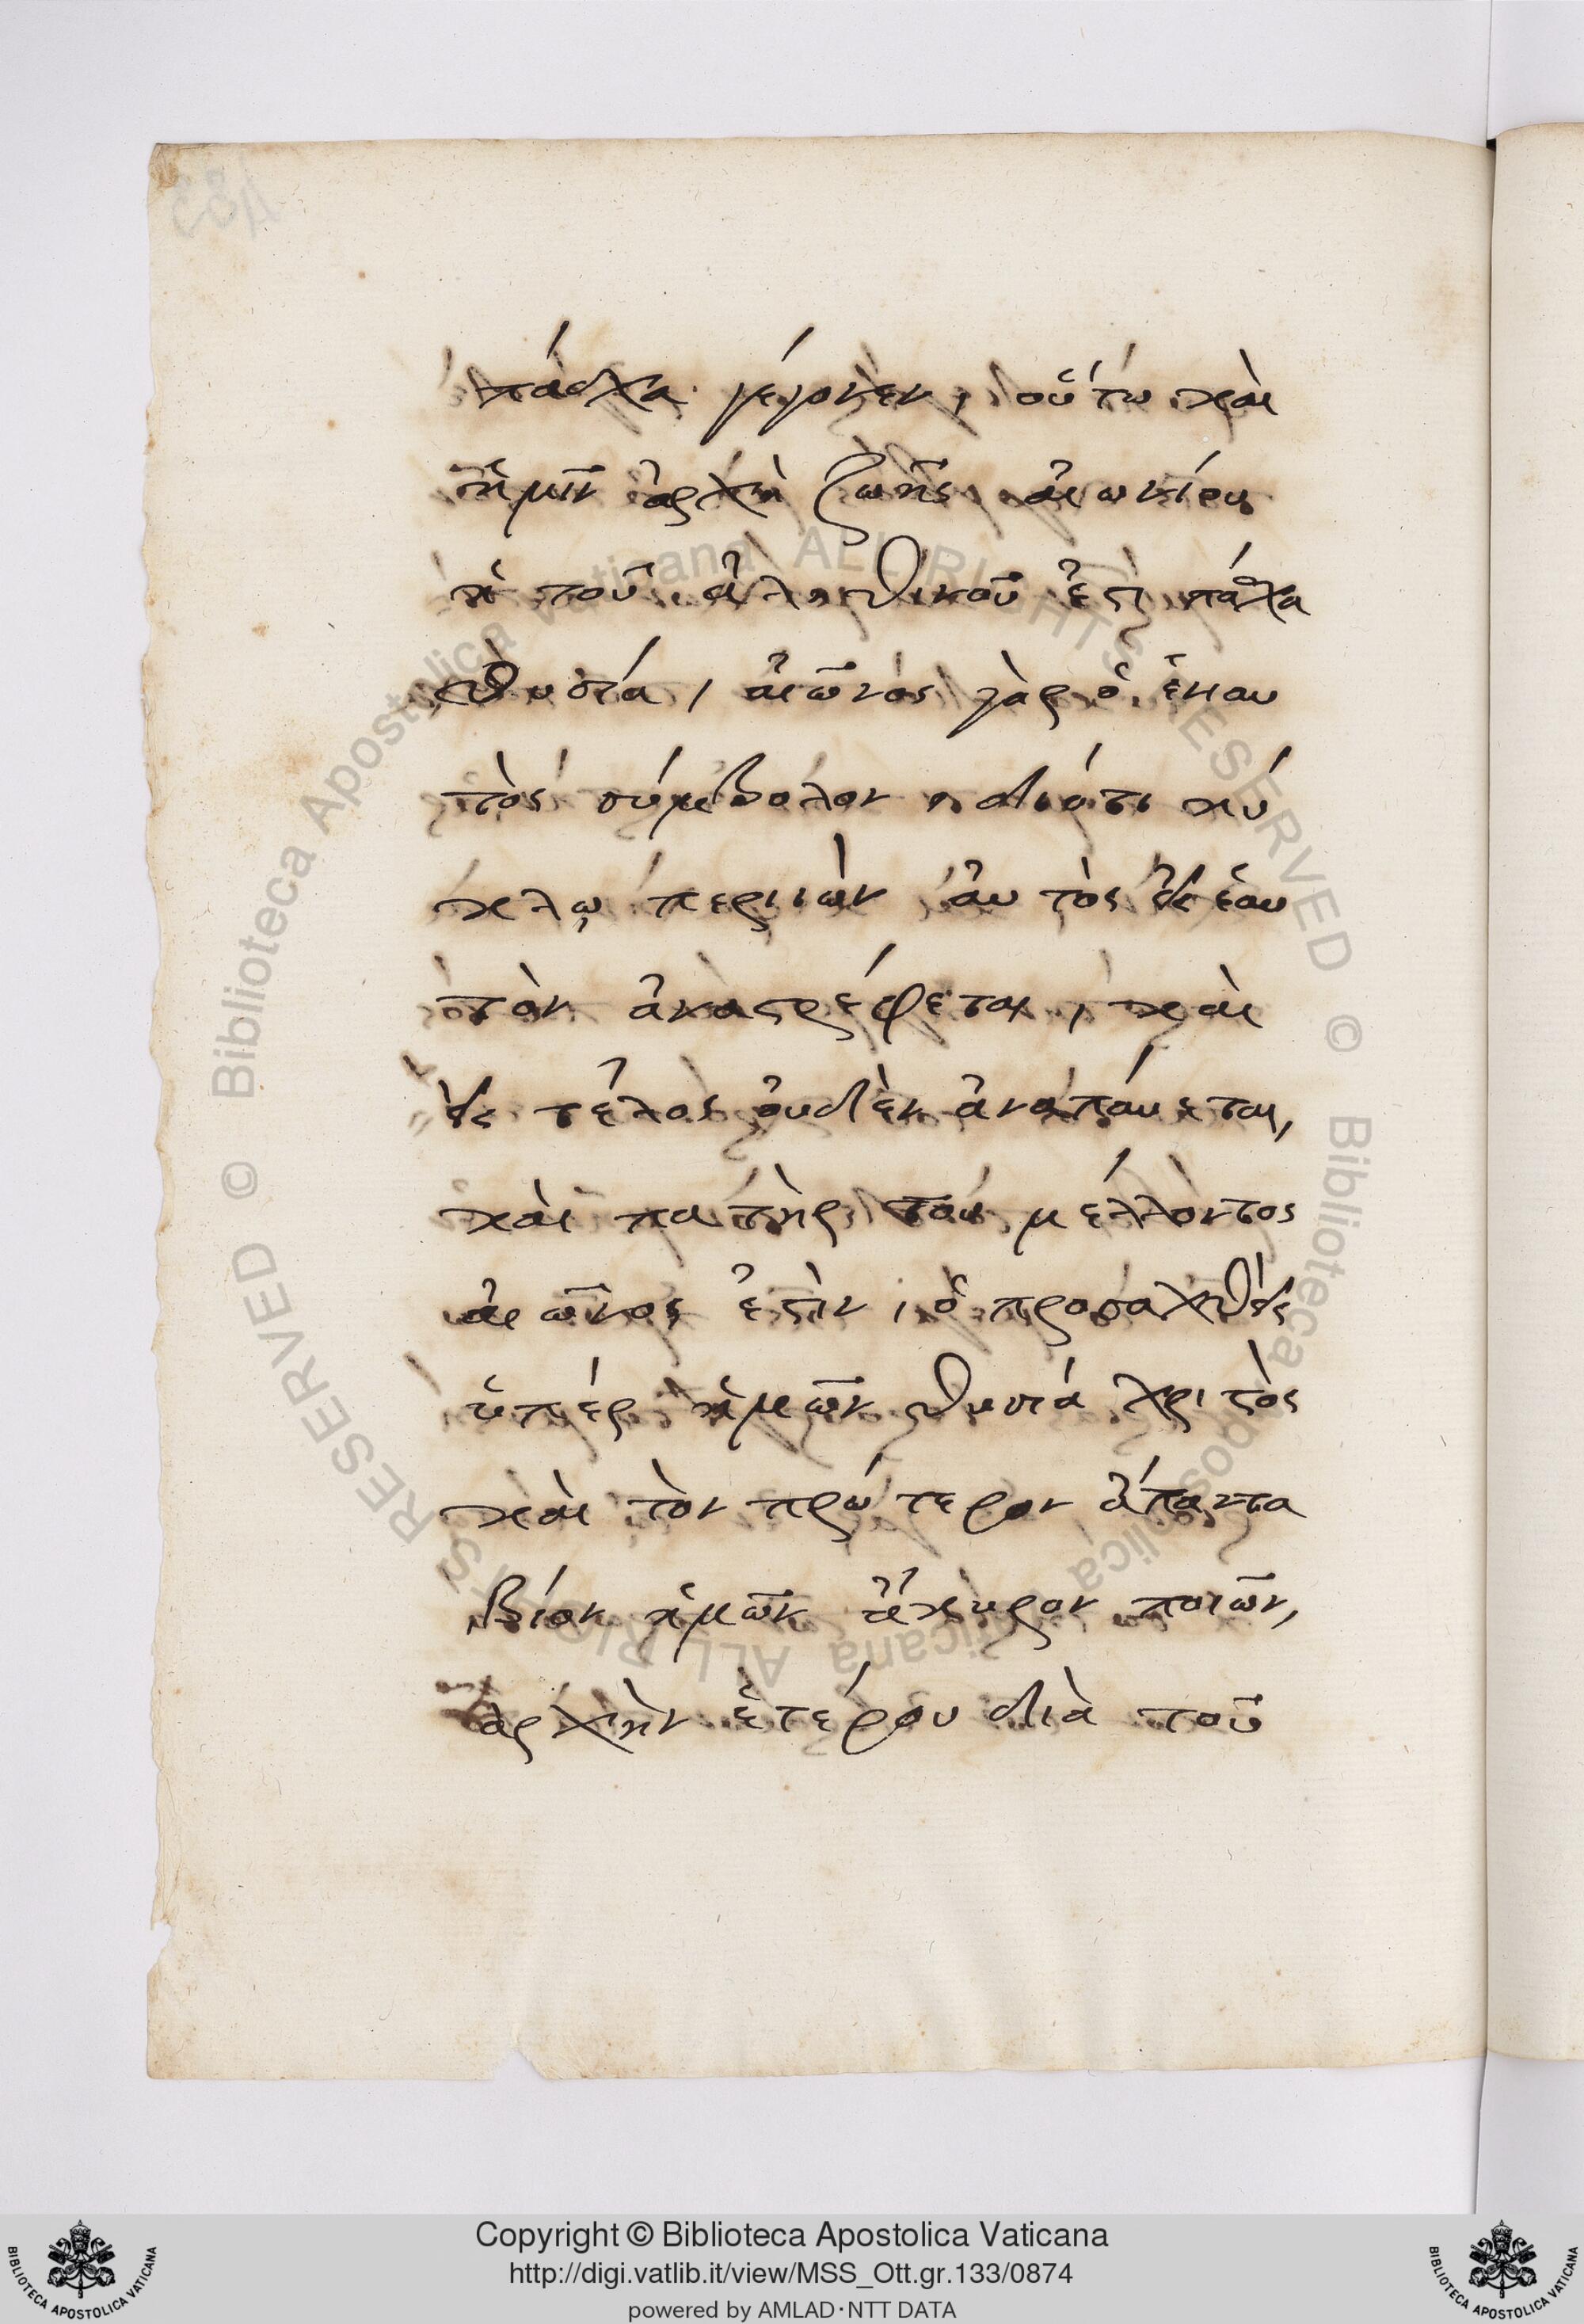 πάσχα γέγονεν, οὕτω καὶ
ἡμῖν ἀρχὴ ζωῆς αἰωνίου
ἡ τοῦ ἀληθινοῦ ἐστι πάσχα
θυσία, αἰῶνος γὰρ ὁ ἐνιαυ
τὸς σύμβολον, διότι κύ
κλῳ περιιὼν αὐτὸς εἰς ἑαυ
τὸν ἀναστρέφεται, καὶ
εἰς τέλος οὐδὲν ἀναπαύεται,
καὶ πατὴρ τοῦ μέλλοντος
αἰῶνος ἐστὶν, ὁ προσαχθεὶς
ὑπὲρ ἡμῶν θυσία χριστὸς
καὶ τὸν πρώτερον ἅπαντα
βίον ἡμῶν ἄκυρον ποιῶν,
ἀρχὴν ἑτέρου διὰ τοῦ
Copyright © Biblioteca Apostolica Vaticana
http://digi.vatlib.it/view/MSS_Ott.gr.133/0874
powered by AMLAD·NTT DATA
BIBLIOTECA APOSTOLICA VATICANA
BIBLIOTECA APOSTOLICA VATICANA
© Biblioteca Apostolica Vaticana ALL RIGHTS RESERVED © Biblioteca Apostolica Vaticana ALL RIGHTS RESERVED